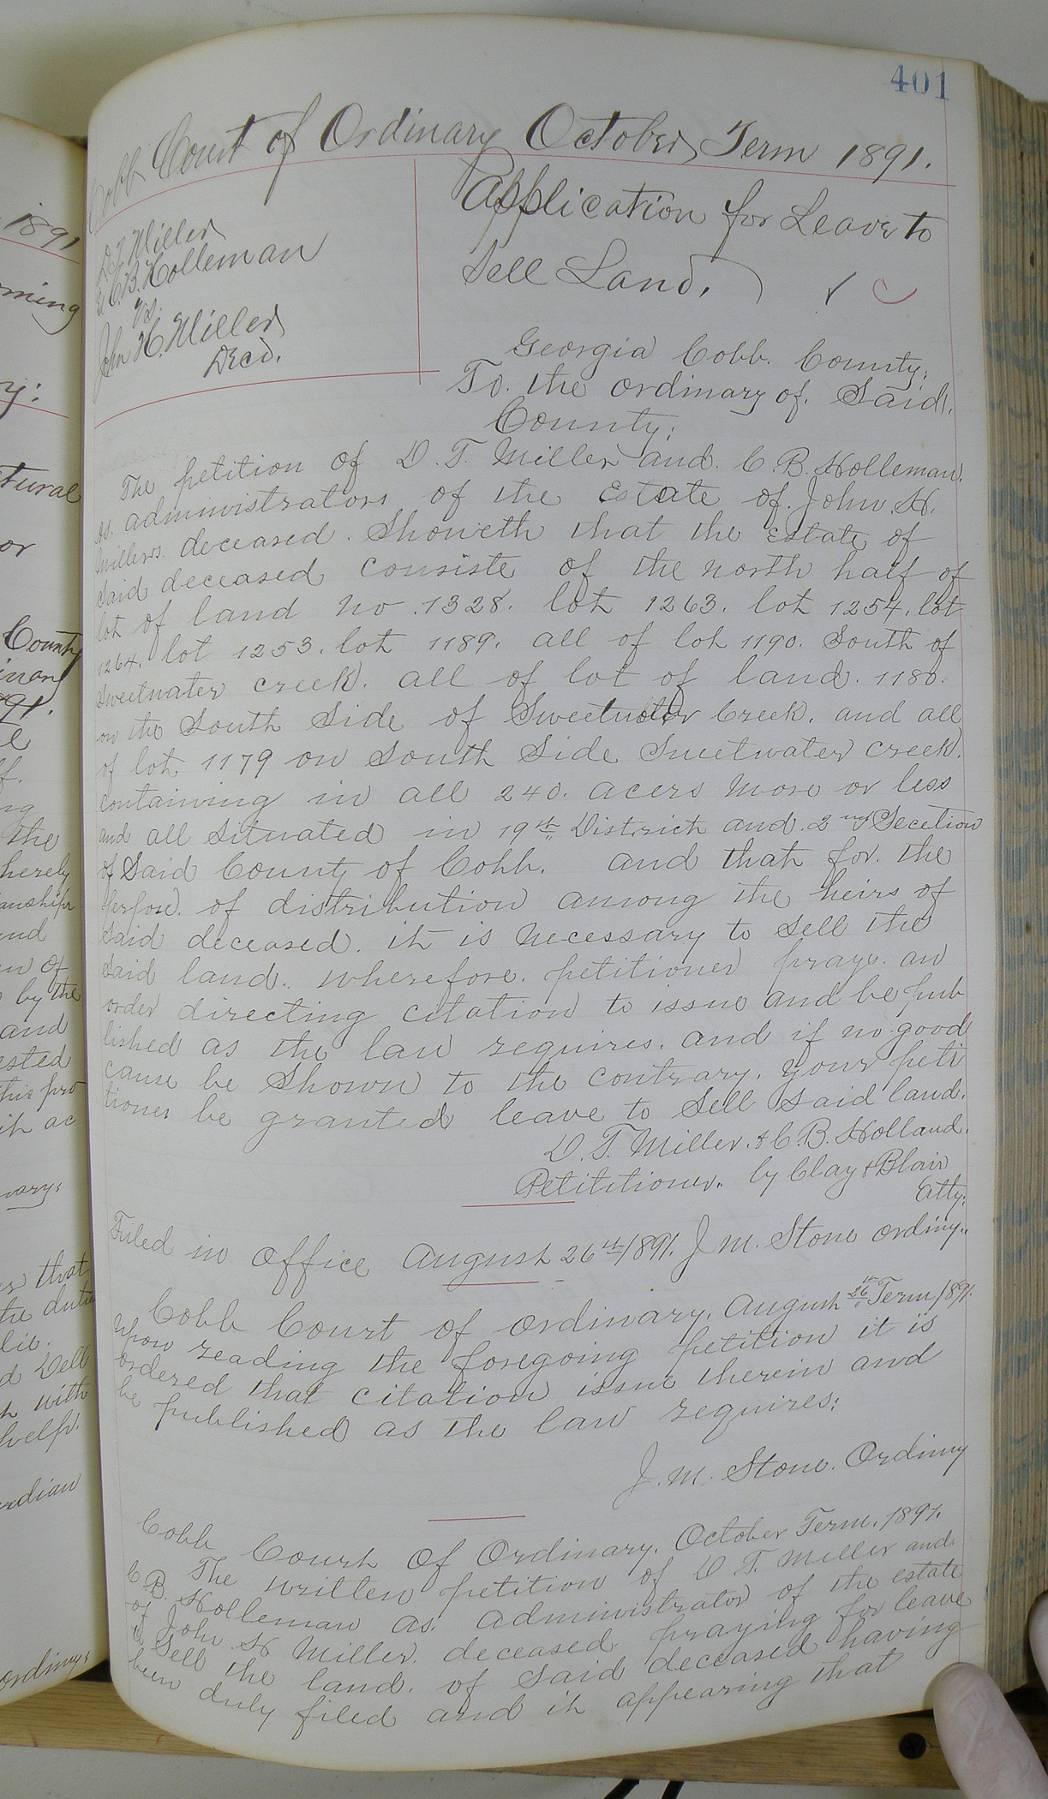 401
Cobb Court of Ordinary October Term 1891.
D.T. Miller
& C.B. Holleman
vs.
John H. Miller
Decd.
Application for Leave to
Sell Land.
Georgia Cobb. County.
To. the ordinary of. Said.
County:
The petition of D. T. Miller and. C. B. Holleman.
as. administrators of the Estate of. John. H.
Millers. deceased. Showeth that the Estate of
Said deceased consiste of the north half of
lot of land no. 1328. lot 1263. lot 1254. lot
1264. lot 1253. lot 1189. all of lot 1190. South of
Sweetwater creek. all of lot of land. 1180.
on the South Side of Sweetwater Creek. and all
of lot 1179 on South Side Sweetwater creek.
containing in all 240. acers more or less
and all Situated in 19th District and. 2nd Secetion
of Said County of Cobb. and that for. the
perpose. of distribution among the heirs of
Said deceased. it is necessary to Sell the
Said land. Wherefore. petitioner prays. an
order directing citation to issue and be pub
lished as the law requires. and if no good
cause be Shown to the contrary. your peti
tioner be granted leave to Sell said land.
D. T. Miller. & C. B. Holland.
Petititioner. by Clay & Blair
Atty.
Filed in office August 26th 1891. J. M. Stone ordiny.
Cobb Court of ordinary. August 26th Term 1891.
Upon reading the foregoing petition it is
ordered that citation issue therein and
be published as the law requires.
J. M. Stone. Ordiny
Cobb Court Of Ordinary. October Term. 1891.
The written petition of D T. Miller and
C B. Holleman as. administrator of the estate
of John H Miller. deceased praying for leave
to Sell the land. of Said deceased having
been duly filed and it appearing that